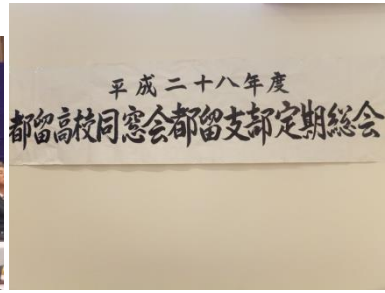 平成二十八年度
都留高校同窓会都留支部定期総会